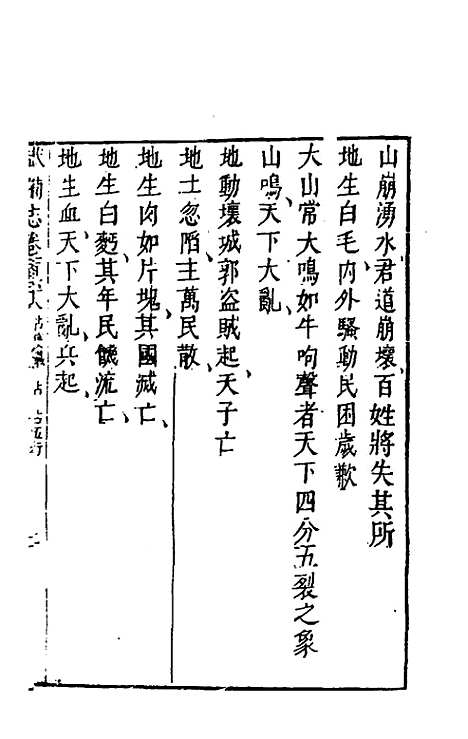 山崩湧水、君道崩壞、百姓將失其所
地生白毛、内外騷動民困歲歉
大山常大鳴如牛吼聲者天下四分五裂之象
山鳴、天下大亂、
地動壞城郭盜賊起、天子亡
地土忽陷、主萬民散、
地生肉如片塊、其國滅亡、
地生白麫、其年民饑流亡、
地生血、天下大亂、兵起、
武備志卷 占 占五行